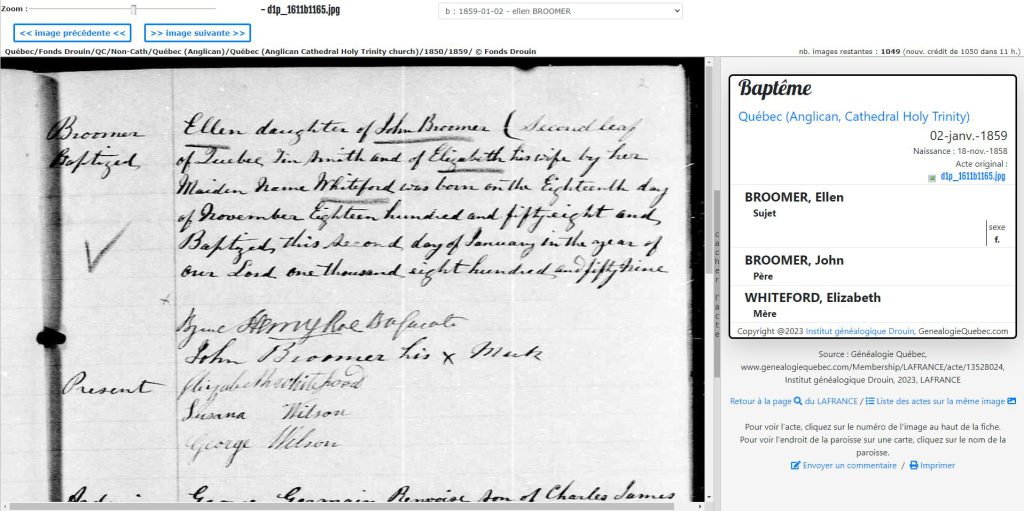 Zoom :
– d1p_1611b1165.jpg
b : 1859-01-02 - ellen BROOMER
<< image précédente <<
>> image suivante >>
Québec/Fonds Drouin/QC/Non-Cath/Québec (Anglican)/Québec (Anglican Cathedral Holy Trinity church)/1850/1859/ © Fonds Drouin
nb. images restantes : 1049 (nouv. crédit de 1050 dans 11 h.)
Broomer
Baptized
Ellen daughter of John Broomer ( Second leaf
of Quebec Tin Smith and of Elizabeth his wife by her
Maiden Name Whiteford was born on the Eighteenth day
of November Eighteen hundred and fifty eight and
Baptized this second day of January in the year of
our Lord one thousand eight hundred and fifty nine
By me Henry Roe
John Broomer his x Mark
Present
Elizabeth
Susana Wilson
George Wilson
George Germain son of Charles James
cacher l'acte
Baptême
Québec (Anglican, Cathedral Holy Trinity)
02-janv.-1859
Naissance : 18-nov.-1858
Acte original :
d1p_1611b1165.jpg
BROOMER, Ellen
Sujet
sexe
f.
BROOMER, John
Père
WHITEFORD, Elizabeth
Mère
Copyright @2023 Institut généalogique Drouin, GenealogieQuebec.com
Source : Généalogie Québec,
www.genealogiequebec.com/Membership/LAFRANCE/acte/13528024,
Institut généalogique Drouin, 2023, LAFRANCE
Retour à la page du LAFRANCE / Liste des actes sur la même image
Pour voir l'acte, cliquez sur le numéro de l'image au haut de la fiche.
Pour voir l'endroit de la paroisse sur une carte, cliquez sur le nom de la
paroisse.
Envoyer un commentaire / Imprimer